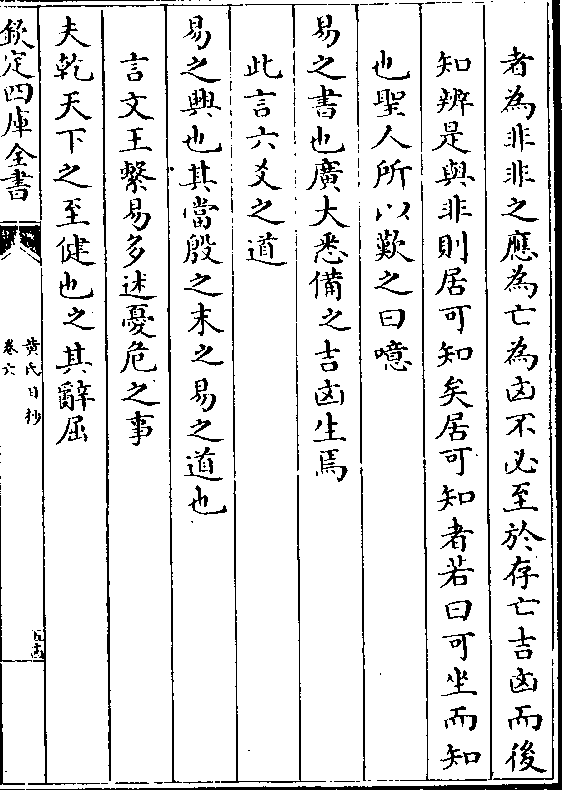 者為非非之應為亡為凶不必至於存亡吉凶而後
知辨是與非則居可知矣居可知者若曰可坐而知
也聖人所以歎之曰噫
易之書也廣大悉備之吉凶生焉
此言六爻之道
易之興也其當殷之末之易之道也
言文王繫易多述憂危之事
夫乾天下之至健也之其辭屈
欽定四庫全書
黄氏日抄
卷六